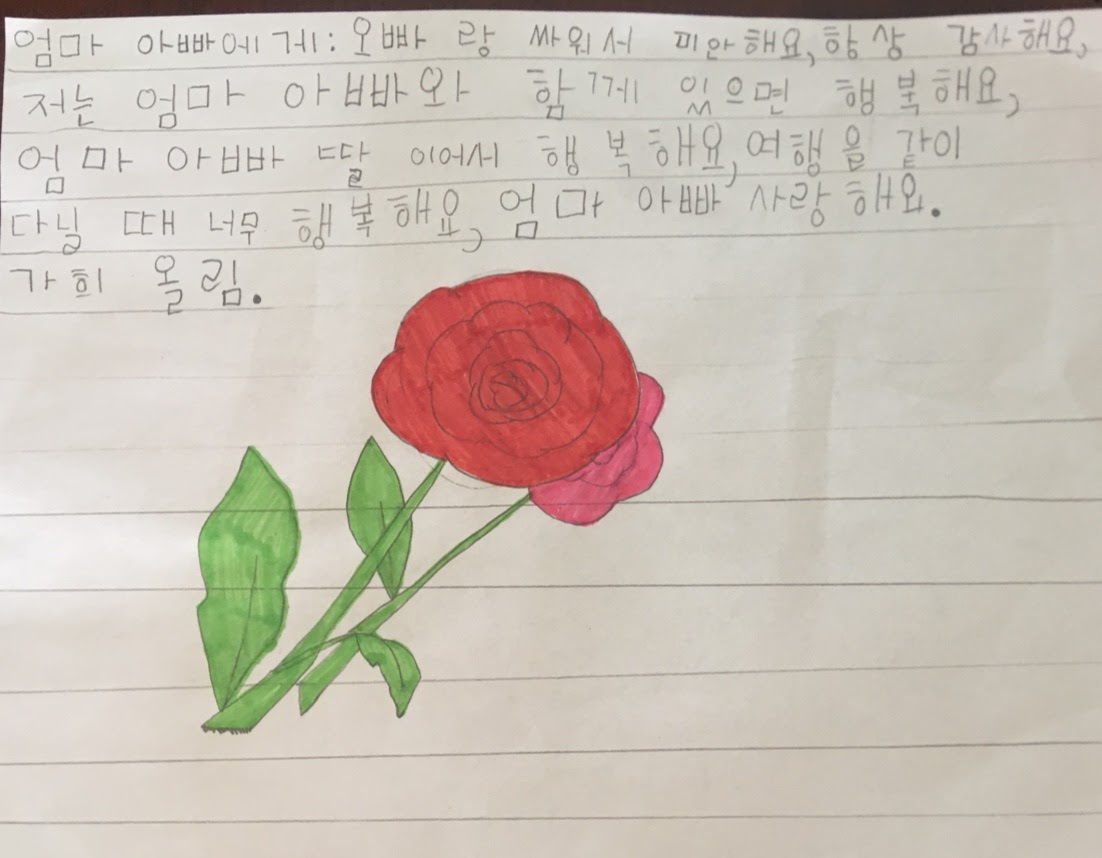 엄마 아빠에게: 오빠 랑 싸워서 미안해요, 항상 감사해요,
저는 엄마 아빠와 함게 있으면 행복해요,
엄마 아빠 딸 이어서 행복해요, 여행을 같이
다닐 때 너무 행복해요, 엄마 아빠 사랑해요.
가희 올림.